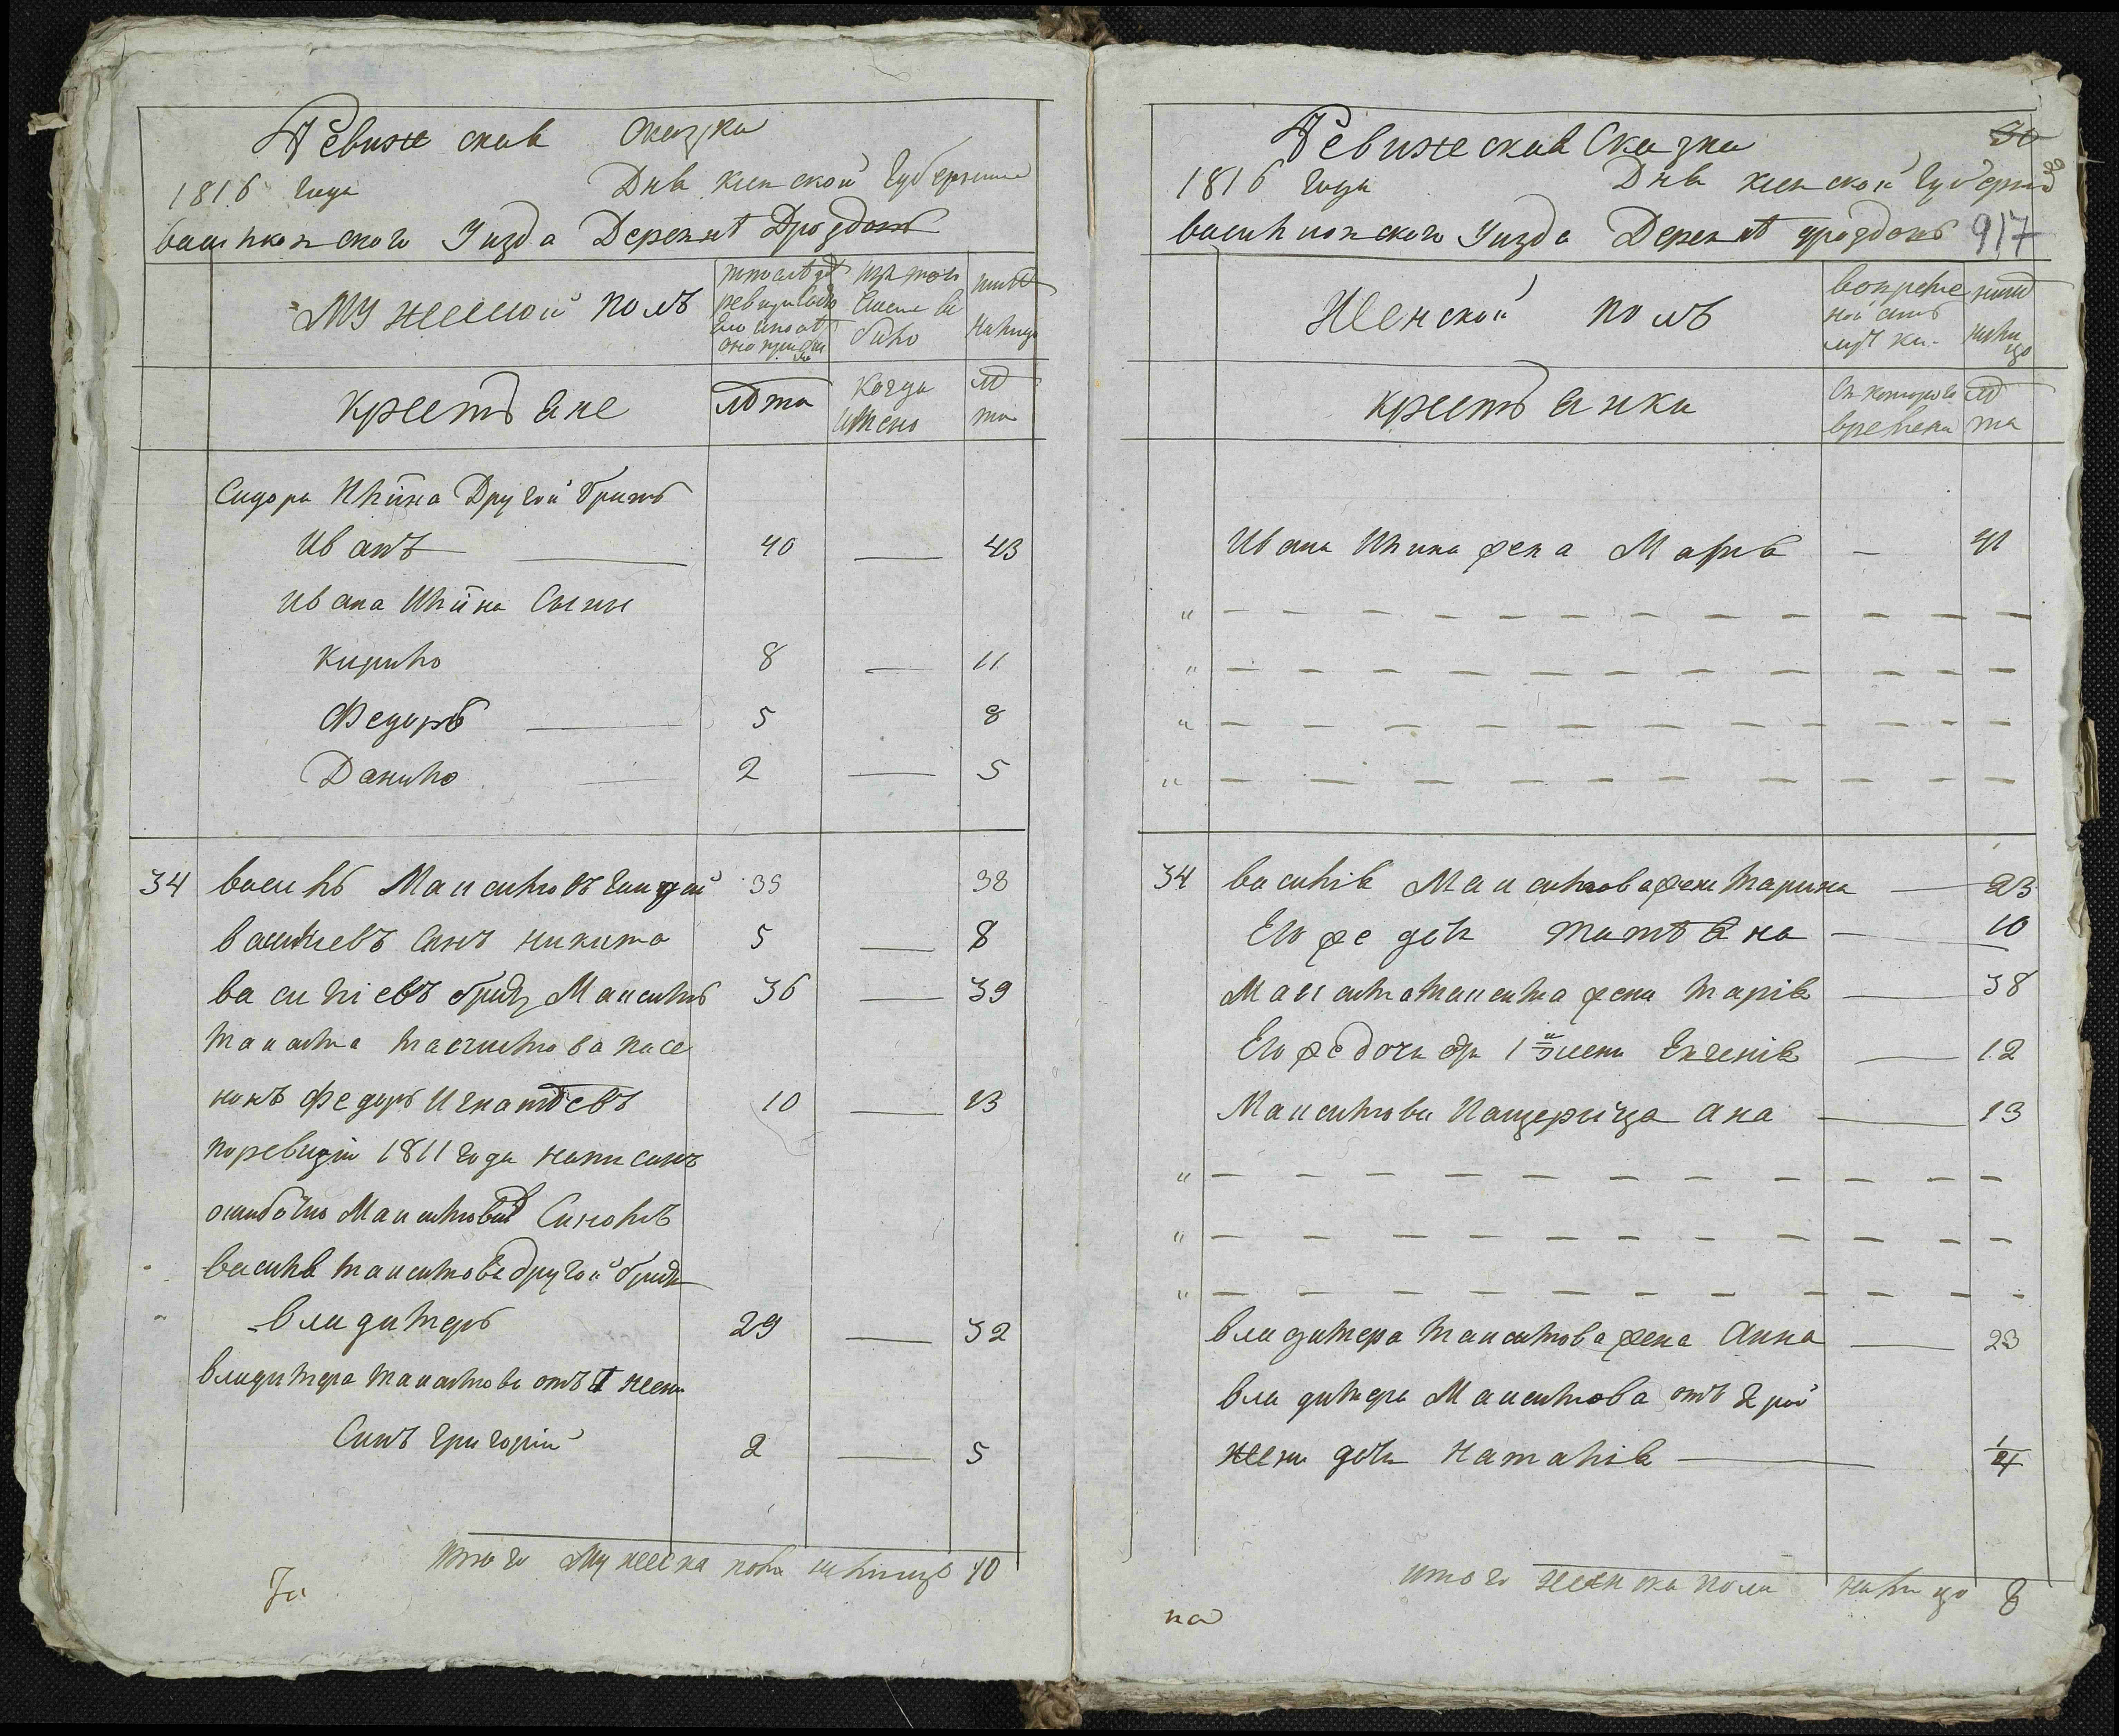 Ревижская Сказка
1816 года Дня киевской губернии
васильковского уизда Деревнѣ Дроздовъ
Мужеский полъ
нтѣ налицо
крестьяне
лѣта
когда
лѣ та
Сидора Ильина Другой братъ
Иванъ 40 — 43
Ивана Ильина Сыны
Кирило 8 — 11
Федоръ 5 8
Данило 2 — 5
34 василь Максимовъ 35 38
васильевъ Синъ никита 5 — 8
василіевъ братъ Максимъ 36 — 39
Максима Максимова пасе
нокъ Федоръ Игнатьевъ 10 — 13
поревизіи 1811 года написанъ
ошибочно Синомъ
василя максимова другой братъ
владимеръ 29 — 32
владимера максимова отъ 1 жены
Синъ григорій 2 — 5
итого мужеска пола налицо 10
За
Ревижеская Сказка 30
1816 года Дня киевской губерніи
васильковского уизда Деревнѣ дроздовъ 917
Женской полъ
крестьянки
съ которого времени
лѣ та
Ивана Ильина жена Марія — 41
34 василія Максимова жена Марина — 23
Его же дочь татьяна — 10
Максима Максима жена Марія — 38
Его же дочь 1й жены — 12
Максимова Пащерица Ана — 13
владимера максимова жена Анна — 23
владимера Максимова отъ 2рой
жены дочь Наталія —
итого женска пола налицо 8
на